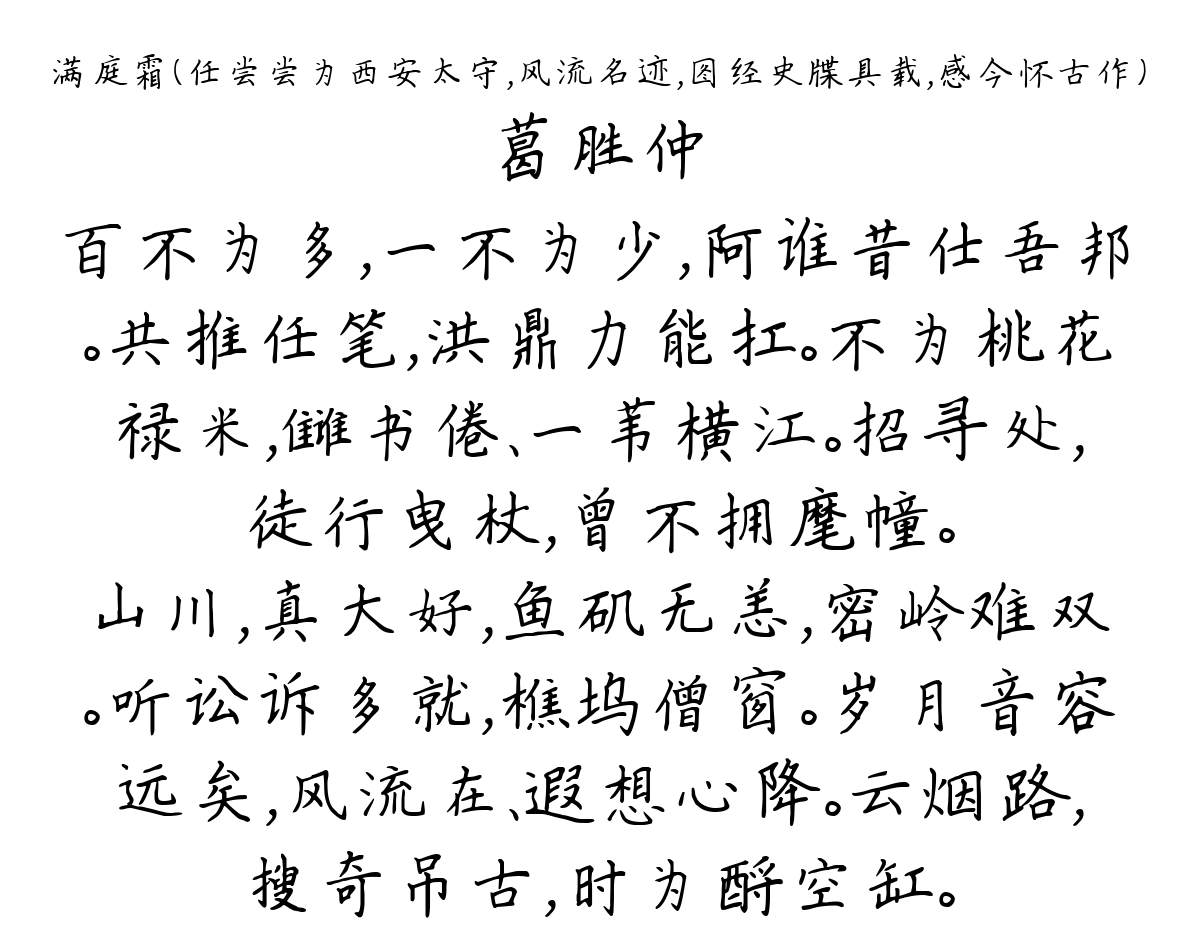 满庭霜(任尝尝为西安太守,风流名迹,图经史牒具载,感今怀古作)
葛胜仲
百不为多,一不为少,阿谁昔仕吾邦
。共推任笔,洪鼎力能扛。不为桃花
禄米,雠书倦、一苇横江。招寻处,
徒行曳杖,曾不拥麾幢。
山川,真大好,鱼矶无恙,密岭难双
。听讼诉多就,樵坞僧窗。岁月音容
远矣,风流在、遐想心降。云烟路,
搜奇吊古,时为酹空缸。